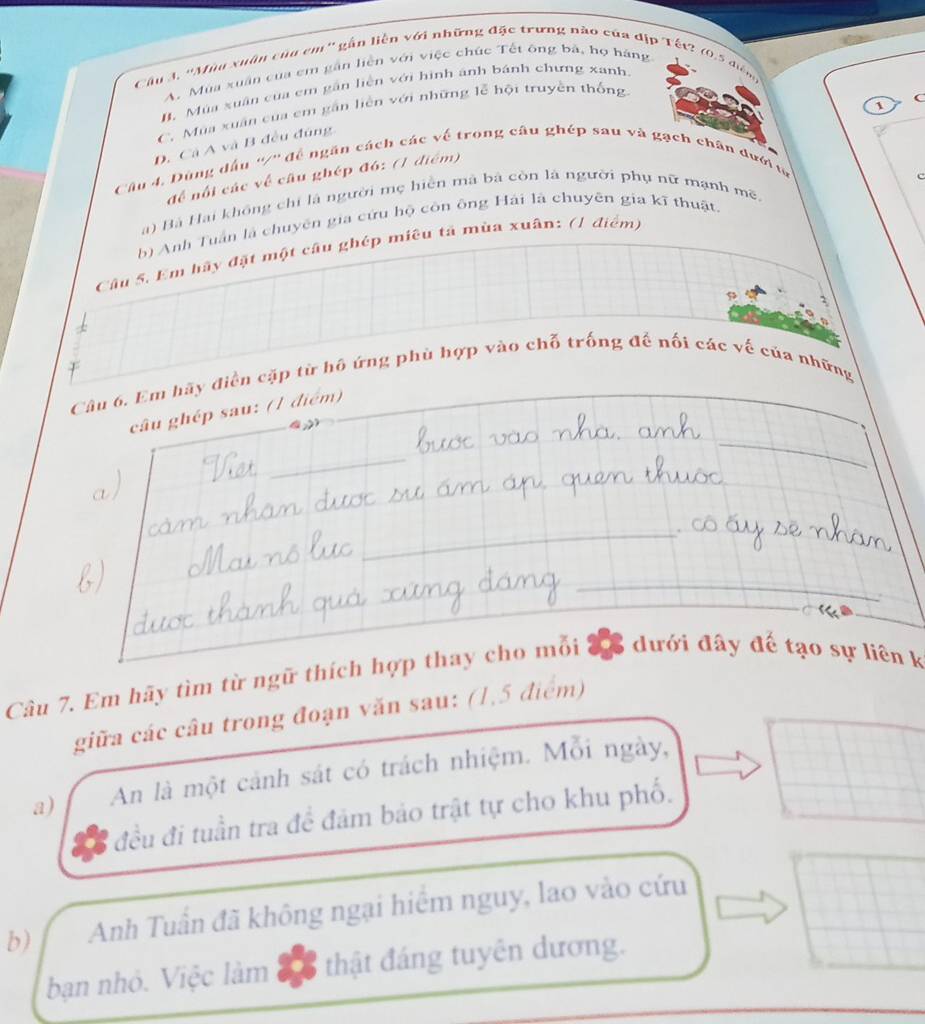 Câu 3. "Mùa xuân của em" gắn liền với những đặc trưng nào của dịp Tết? (0,5 điểm)
A. Mùa xuân của em gắn liền với việc chúc Tết ông bà, họ hàng.
B. Mùa xuân của em gắn liền với hình ảnh bánh chưng xanh.
C. Mùa xuân của em gắn liền với những lễ hội truyền thống.
D. Cả A và B đều đúng.
Câu 4. Dùng dấu "/" để ngăn cách các vế trong câu ghép sau và gạch chân dưới từ
để nối các vế câu ghép đó: (1 điểm)
a) Bà Hai không chỉ là người mẹ hiền mà bà còn là người phụ nữ mạnh mẽ.
b) Anh Tuấn là chuyên gia cứu hộ còn ông Hải là chuyên gia kĩ thuật.
Câu 5. Em hãy đặt một câu ghép miêu tả mùa xuân: (1 điểm)
Câu 6. Em hãy điền cặp từ hô ứng phù hợp vào chỗ trống để nối các vế của những
câu ghép sau: (1 điểm)
a) Việt ______ bước vào nhà, anh ______
cảm nhận được sự ấm áp, quen thuộc
b) Mai nỗ lực ______, cô ấy sẽ nhận
được thành quả xứng đáng ______.
Câu 7. Em hãy tìm từ ngữ thích hợp thay cho mỗi dưới đây để tạo sự liên k
giữa các câu trong đoạn văn sau: (1,5 điểm)
a) An là một cảnh sát có trách nhiệm. Mỗi ngày,
đều đi tuần tra để đảm bảo trật tự cho khu phố.
b) Anh Tuấn đã không ngại hiểm nguy, lao vào cứu
bạn nhỏ. Việc làm thật đáng tuyên dương.
1